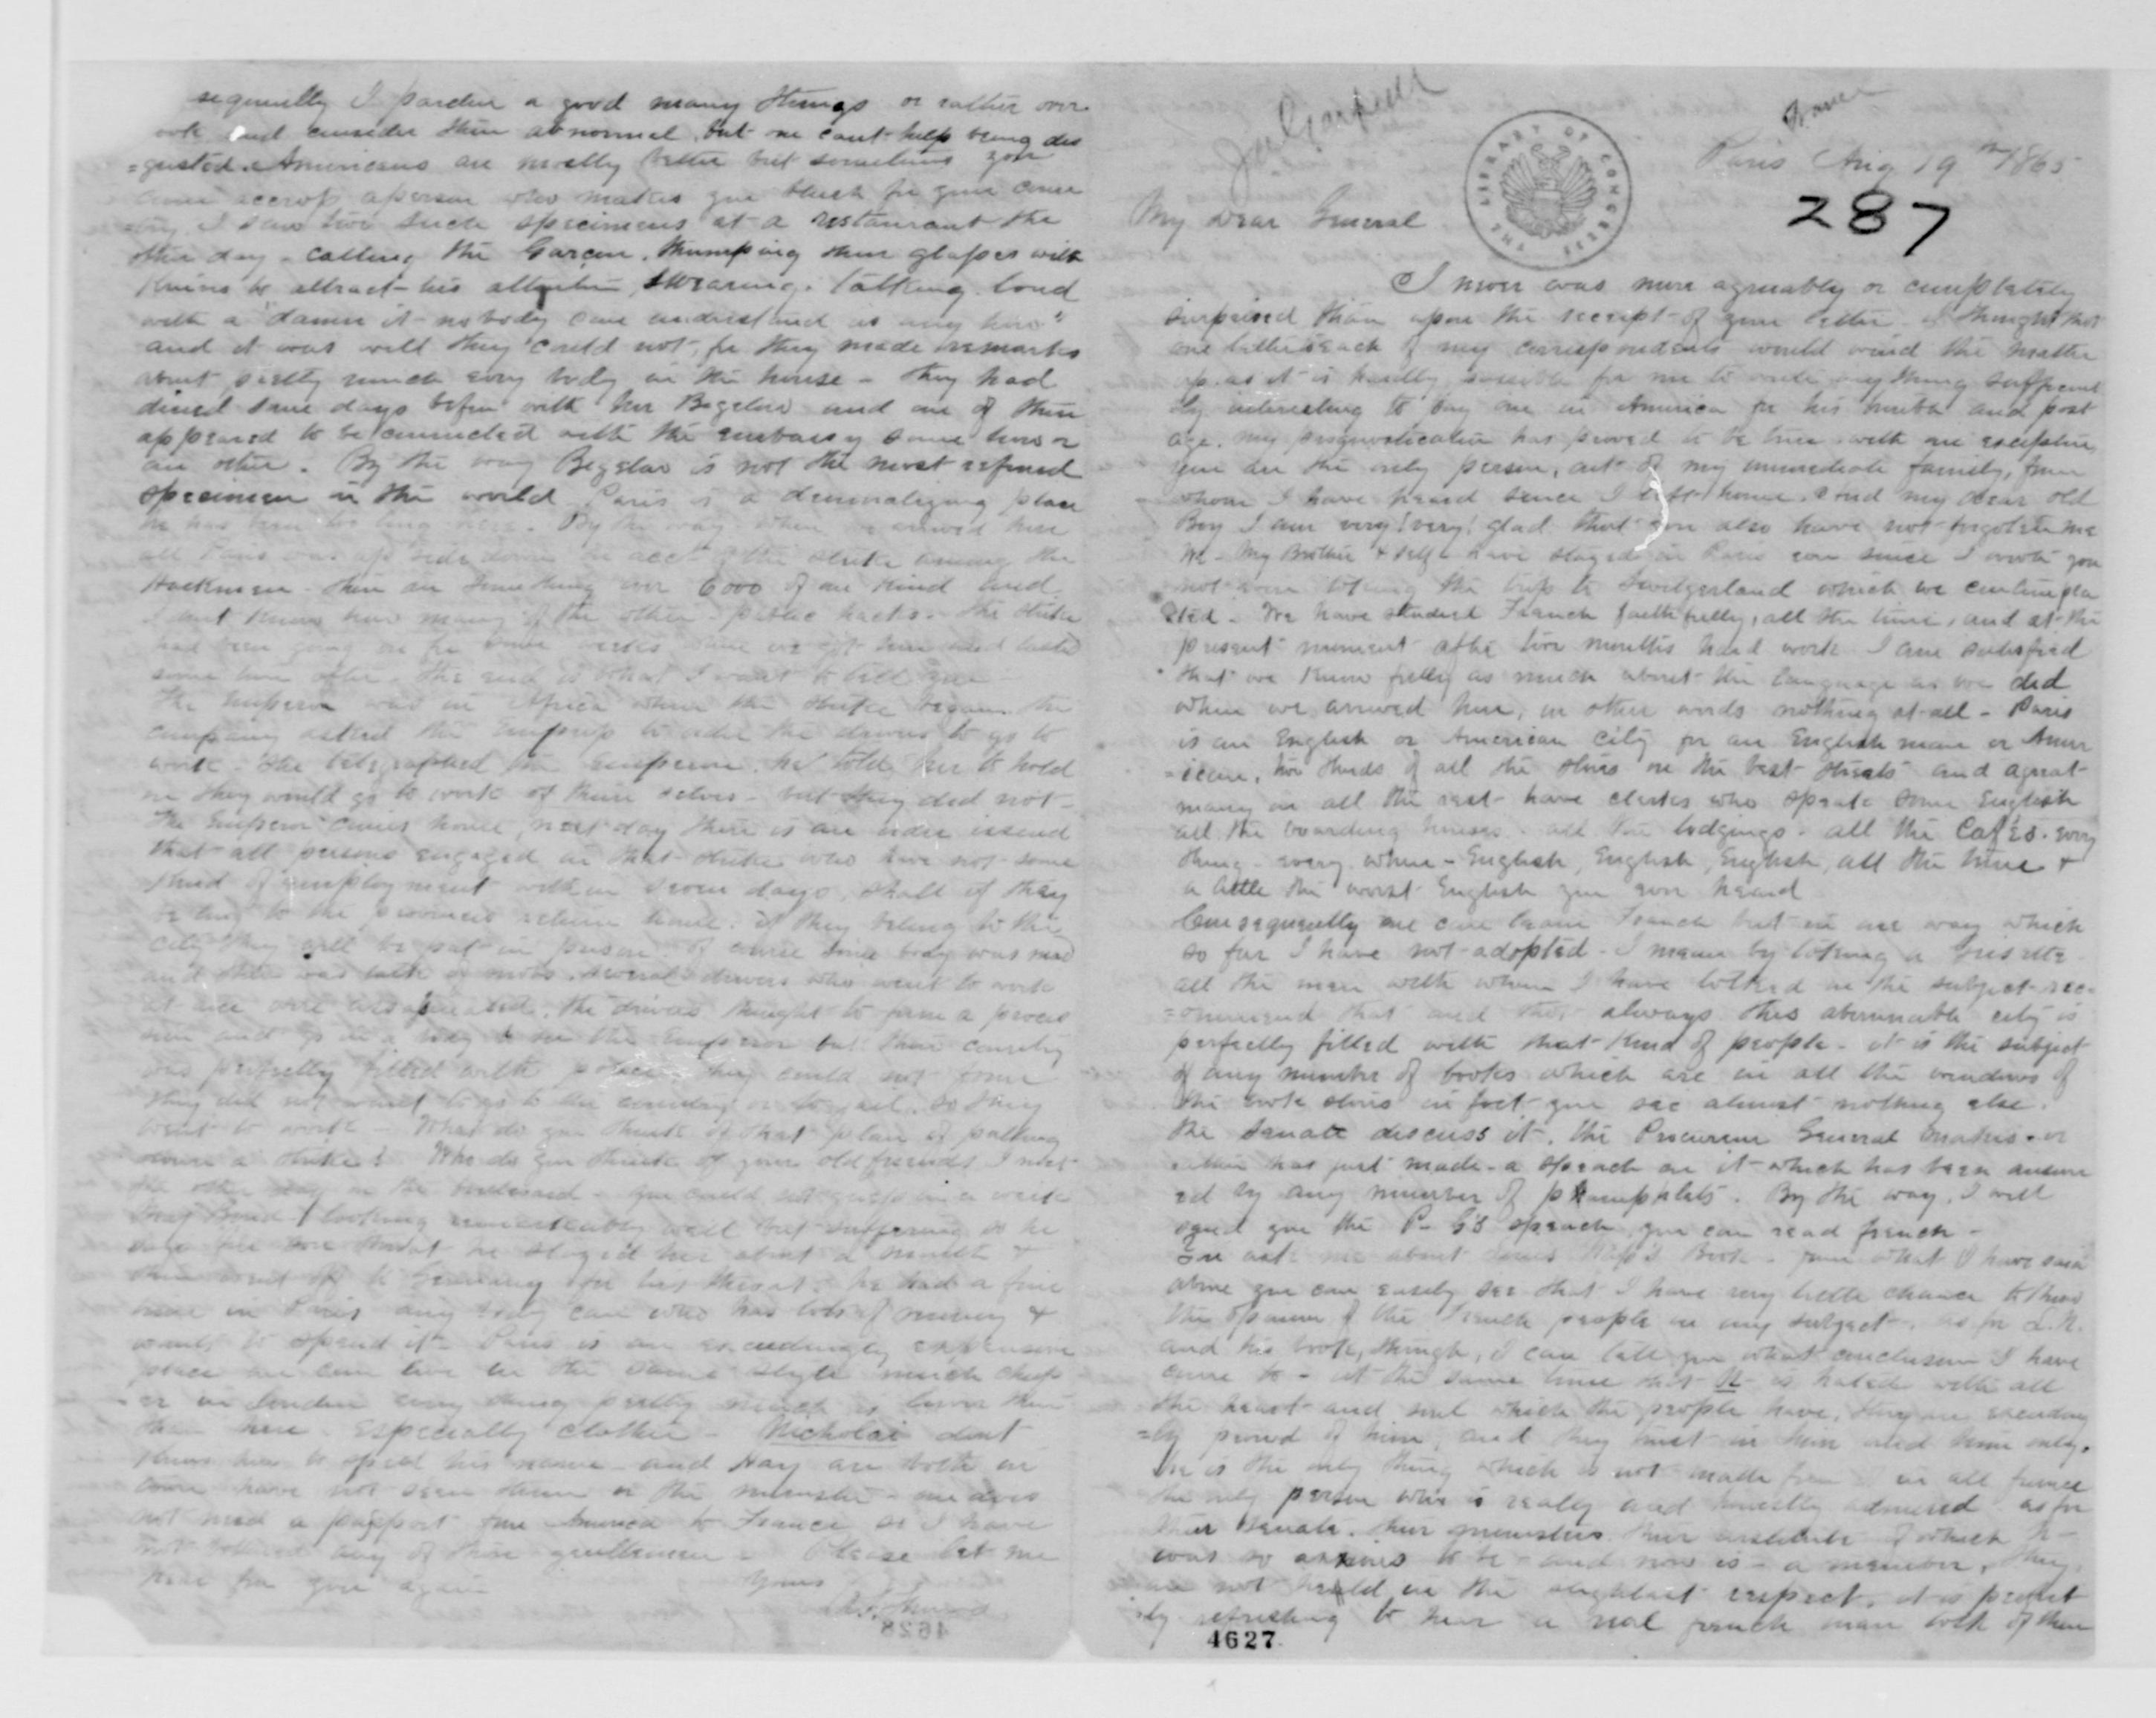 Paris Aug 19th 1865
287
THE LIBRARY OF CONGRESS
My Dear General
I never was more agreeably or completely
surprised than upon the receipt of your letter. I thought that
one letter each of my correspondents would wind the matter
up as it is hardly possible for me to write anything sufficient
ly interesting to any one in America for his trouble and post
age. my prognostication has proved to be true with one exception
you are the only person, out of my immediate family, from
whom I have heard since I left home. And my dear old
Boy I am very! very! glad that you also have not forgotten me
We - My Brother & self - have stayed in Paris ever since I wrote you
not even taking the trip to Switzerland which we contempla
ted. We have studied French faithfully, all the time, and at the
present moment after two months hard work I am satisfied
that we know fully as much about the language as we did
when we arrived here, in other words nothing at all - Paris
is an English or American city for an English man or Amer
=ican, two thirds of all the stores on the best streets and a great
many in all the rest have clerks who speak some English
all the boarding houses. all the lodgings. all the Cafés. every
thing - every where - English, English, English, all the time &
a little the worst English you ever heard
Consequently one can learn French but in one way which
so far I have not adopted - I mean by taking a Grisette
all the men with whom I have talked on the subject rec=
=ommend that and that always this abominable city is
perfectly filled with that kind of people - it is the subject
of any number of books which are in all the windows of
the book stores in fact you see almost nothing else.
the Senate discuss it, the Procureur General makes - or
rather has just made - a speach on it which has been answer
ed by any number of pamphlets. By the way, I will
send you the P- G's speach you can read french -
You ask me about Louis Nap's Book - from what I have said
above you can easily see that I have very little chance to know
the opinion of the French people on any subject, as for L.N.
and his book, though, I can tell you what conclusion I have
come to - at the same time that N- is hated with all
the heart and soul which the people have, they are exceeding
=ly proud of him, and they trust in him and him only.
he is the only thing which is not made fun of in all france
the only person who is really and honestly admired as for
their Senate. their ministers their institute of which N-
was so anxious to be - and now is - a member, they
are not held in the slightest respect, it is perfect
ly refreshing to hear a real french man talk of them
4627
sequently I pardon a good many things or rather over
look and consider them abnormal. but one cant help being dis
=gusted. Americans are mostly better but sometimes you
come accross a person who makes you blush for your coun
=try. I saw two such specimens at a restaurant the
other day - calling the Garcon. thumping their glasses with
knives to attract his attention, swearing. talking loud
with a "damn it nobody can understand us any how"
and it was well they could not, for they made remarks
about pretty much every body in the house - They had
dined some days before with Mr Bigelow and one of them
appeared to be connected with the embassy some how or
an other. By the way Bigelow is not the most refined
specimen in the world Paris is a demoralizing place
he has been too long here. By the way when we arrived here
all Paris was up side down on acct of the strike among the
Hackmen - there are something over 6000 of one kind and
I dont know how many of the other public hacks. The strike
had been going on for some weeks when we got here and lasted
some time after. the end is what I want to tell you
The Emperor was in Africa when the strike began the
company asked the Empress to order the drivers to go to
work. She telegraphed the Emperor. he told her to hold
on they would go to work of them selves - but they did not -
The Emperor comes home, next day there is an order issued
that all persons engaged in that strike who have not some
kind of employment within seven days, shall if they
belong to the provinces return home. if they belong to the
city they will be put in prison. Of course some body was mad
and there was talk of mobs. several drivers who went to work
at once were assassinated. the drivers thought to form a proces
sion and go in a body to see the Emperor but their country
was perfectly filled with police, they could not come
they did not want to go to the country or to jail. so they
went to work - What do you think of that plan of putting
down a strike? Who do you think of your old friends I met
the other day on the boulevard - you could not guess in a week
looking remarkably well but suffering so he
says from sore throat he stayed here about a month &
then went off to Germany for his throat. he had a fine
time in Paris any body can who has lots of money &
wants to spend it - Paris is an exceedingly expensive
place one can live in the same style much cheap
-er in London every thing pretty much is lower there
than here. especially clothes - Nicholai dont
know how to spell his name - and Hay are both in
town have not seen them or the minister - one does
not need a passport from America to France so I have
not bothered any of these gentlemen - Please let me
hear from you again
Yours
4628